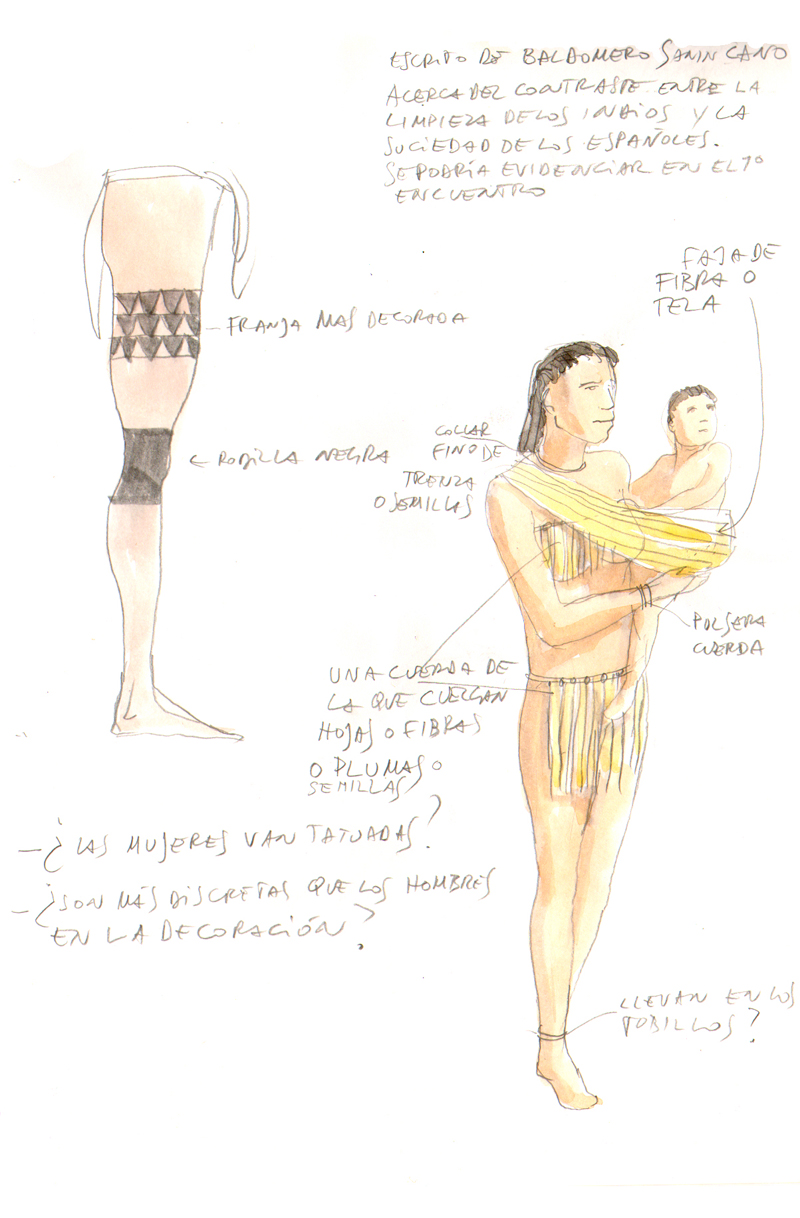 ESCRITO DE BALDOMERO SANIN CANO
ACERCA DEL CONTRASTE ENTRE LA
LIMPIEZA DE LOS INDIOS Y LA
SUCIEDAD DE LOS ESPAÑOLES.
SE PODRÍA EVIDENCIAR EN EL 1º
ENCUENTRO
FAJA DE
FIBRA O
TELA
FRANJA MAS DECORADA
COLLAR
FINO DE
TRENZA
O SEMILLAS
RODILLA NEGRA
PULSERA
CUERDA
UNA CUERDA DE
LA QUE CUELGAN
HOJAS O FIBRAS
O PLUMAS O
SEMILLAS
- ¿LAS MUJERES VAN TATUADAS?
- ¿SON MÁS DISCRETAS QUE LOS HOMBRES
EN LA DECORACIÓN?
LLEVAN EN LOS
TOBILLOS?